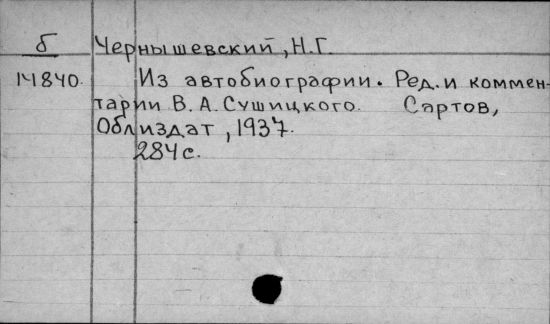 б Чернышевский, Н.Г.
14840. Из автобиографии. Ред. и коммен-
тарии В. А. Сушицкого. Сартов,
Облиздат, 1937.
284 с.